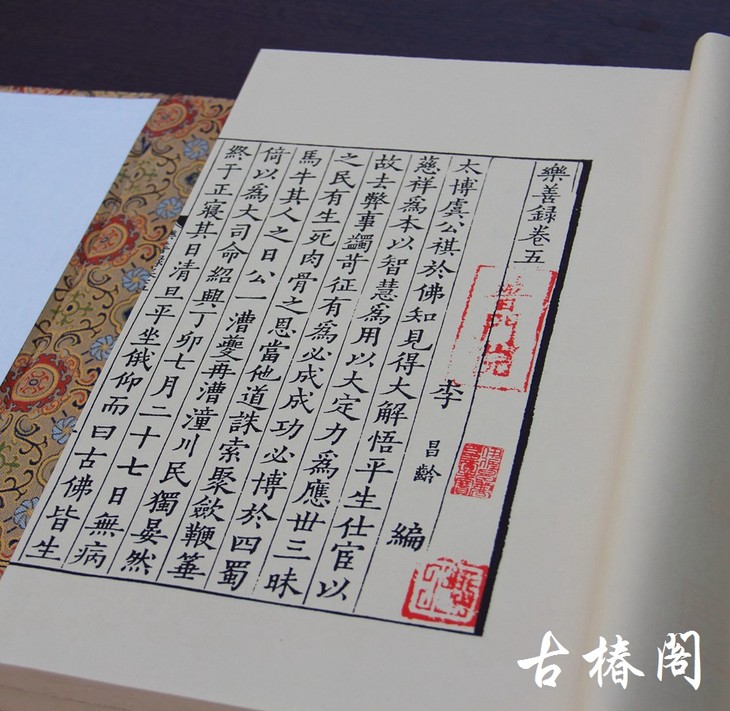 樂善録卷五
李 昌齡 編
太博虞公祺於佛知見得大解悟平生仕宦以
慈祥爲本以智慧爲用以大定力爲應丗三昧
故去弊事蠲苛征有爲必成成功必博於四蜀
之民有生死肉骨之恩當他道誅索聚斂鞭箠
馬牛其人之日公一漕夔再漕潼川民獨晏然
倚以爲大司命紹興丁卯七月二十七日無病
終于正寢其日清旦平坐俄仰而曰古佛皆生
普門院
古椿閣